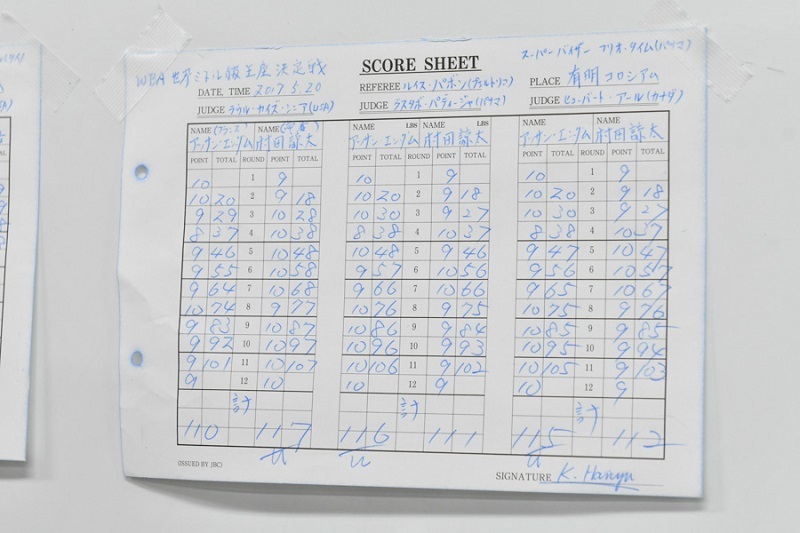 WBA世界ミドル級王座決定戦
SCORE SHEET
スーパーバイザー フリオ・タイム(パナマ)
DATE, TIME 2017.5.20
REFEREE ルイス・パボン(プエルトリコ)
PLACE 有明コロシアム
JUDGE ラウル・カイズ・シニア(USA)
JUDGE グスタボ・パディージャ(パナマ)
JUDGE ヒューバート・アール(カナダ)
NAME (フランス) NAME NAME LBS NAME LBS NAME NAME
アッサン・エンダム 村田諒太 アッサン・エンダム 村田諒太 アッサン・エンダム 村田諒太
POINT TOTAL ROUND POINT TOTAL POINT TOTAL ROUND POINT TOTAL POINT TOTAL ROUND POINT TOTAL
10 1 9 10 1 9 10 1 9
10 20 2 9 18 10 20 2 9 18 10 20 2 9 18
9 29 3 10 28 10 30 3 9 27 10 30 3 9 27
8 37 4 10 38 8 38 4 10 37 8 38 4 10 37
9 46 5 10 48 10 48 5 9 46 9 47 5 10 47
9 55 6 10 58 9 57 6 10 56 9 56 6 10 57
9 64 7 10 68 9 66 7 10 66 9 65 7 10 67
10 74 8 9 77 10 76 8 9 75 10 75 8 9 76
9 83 9 10 87 10 86 9 9 84 10 85 9 9 85
9 92 10 10 97 10 96 10 9 93 10 95 10 9 94
9 101 11 10 107 10 106 11 9 102 10 105 11 9 103
9 12 10 10 12 9 10 12 9
計 計 計
110 117 116 111 115 112
(ISSUED BY JBC)
SIGNATURE K. Hanyu